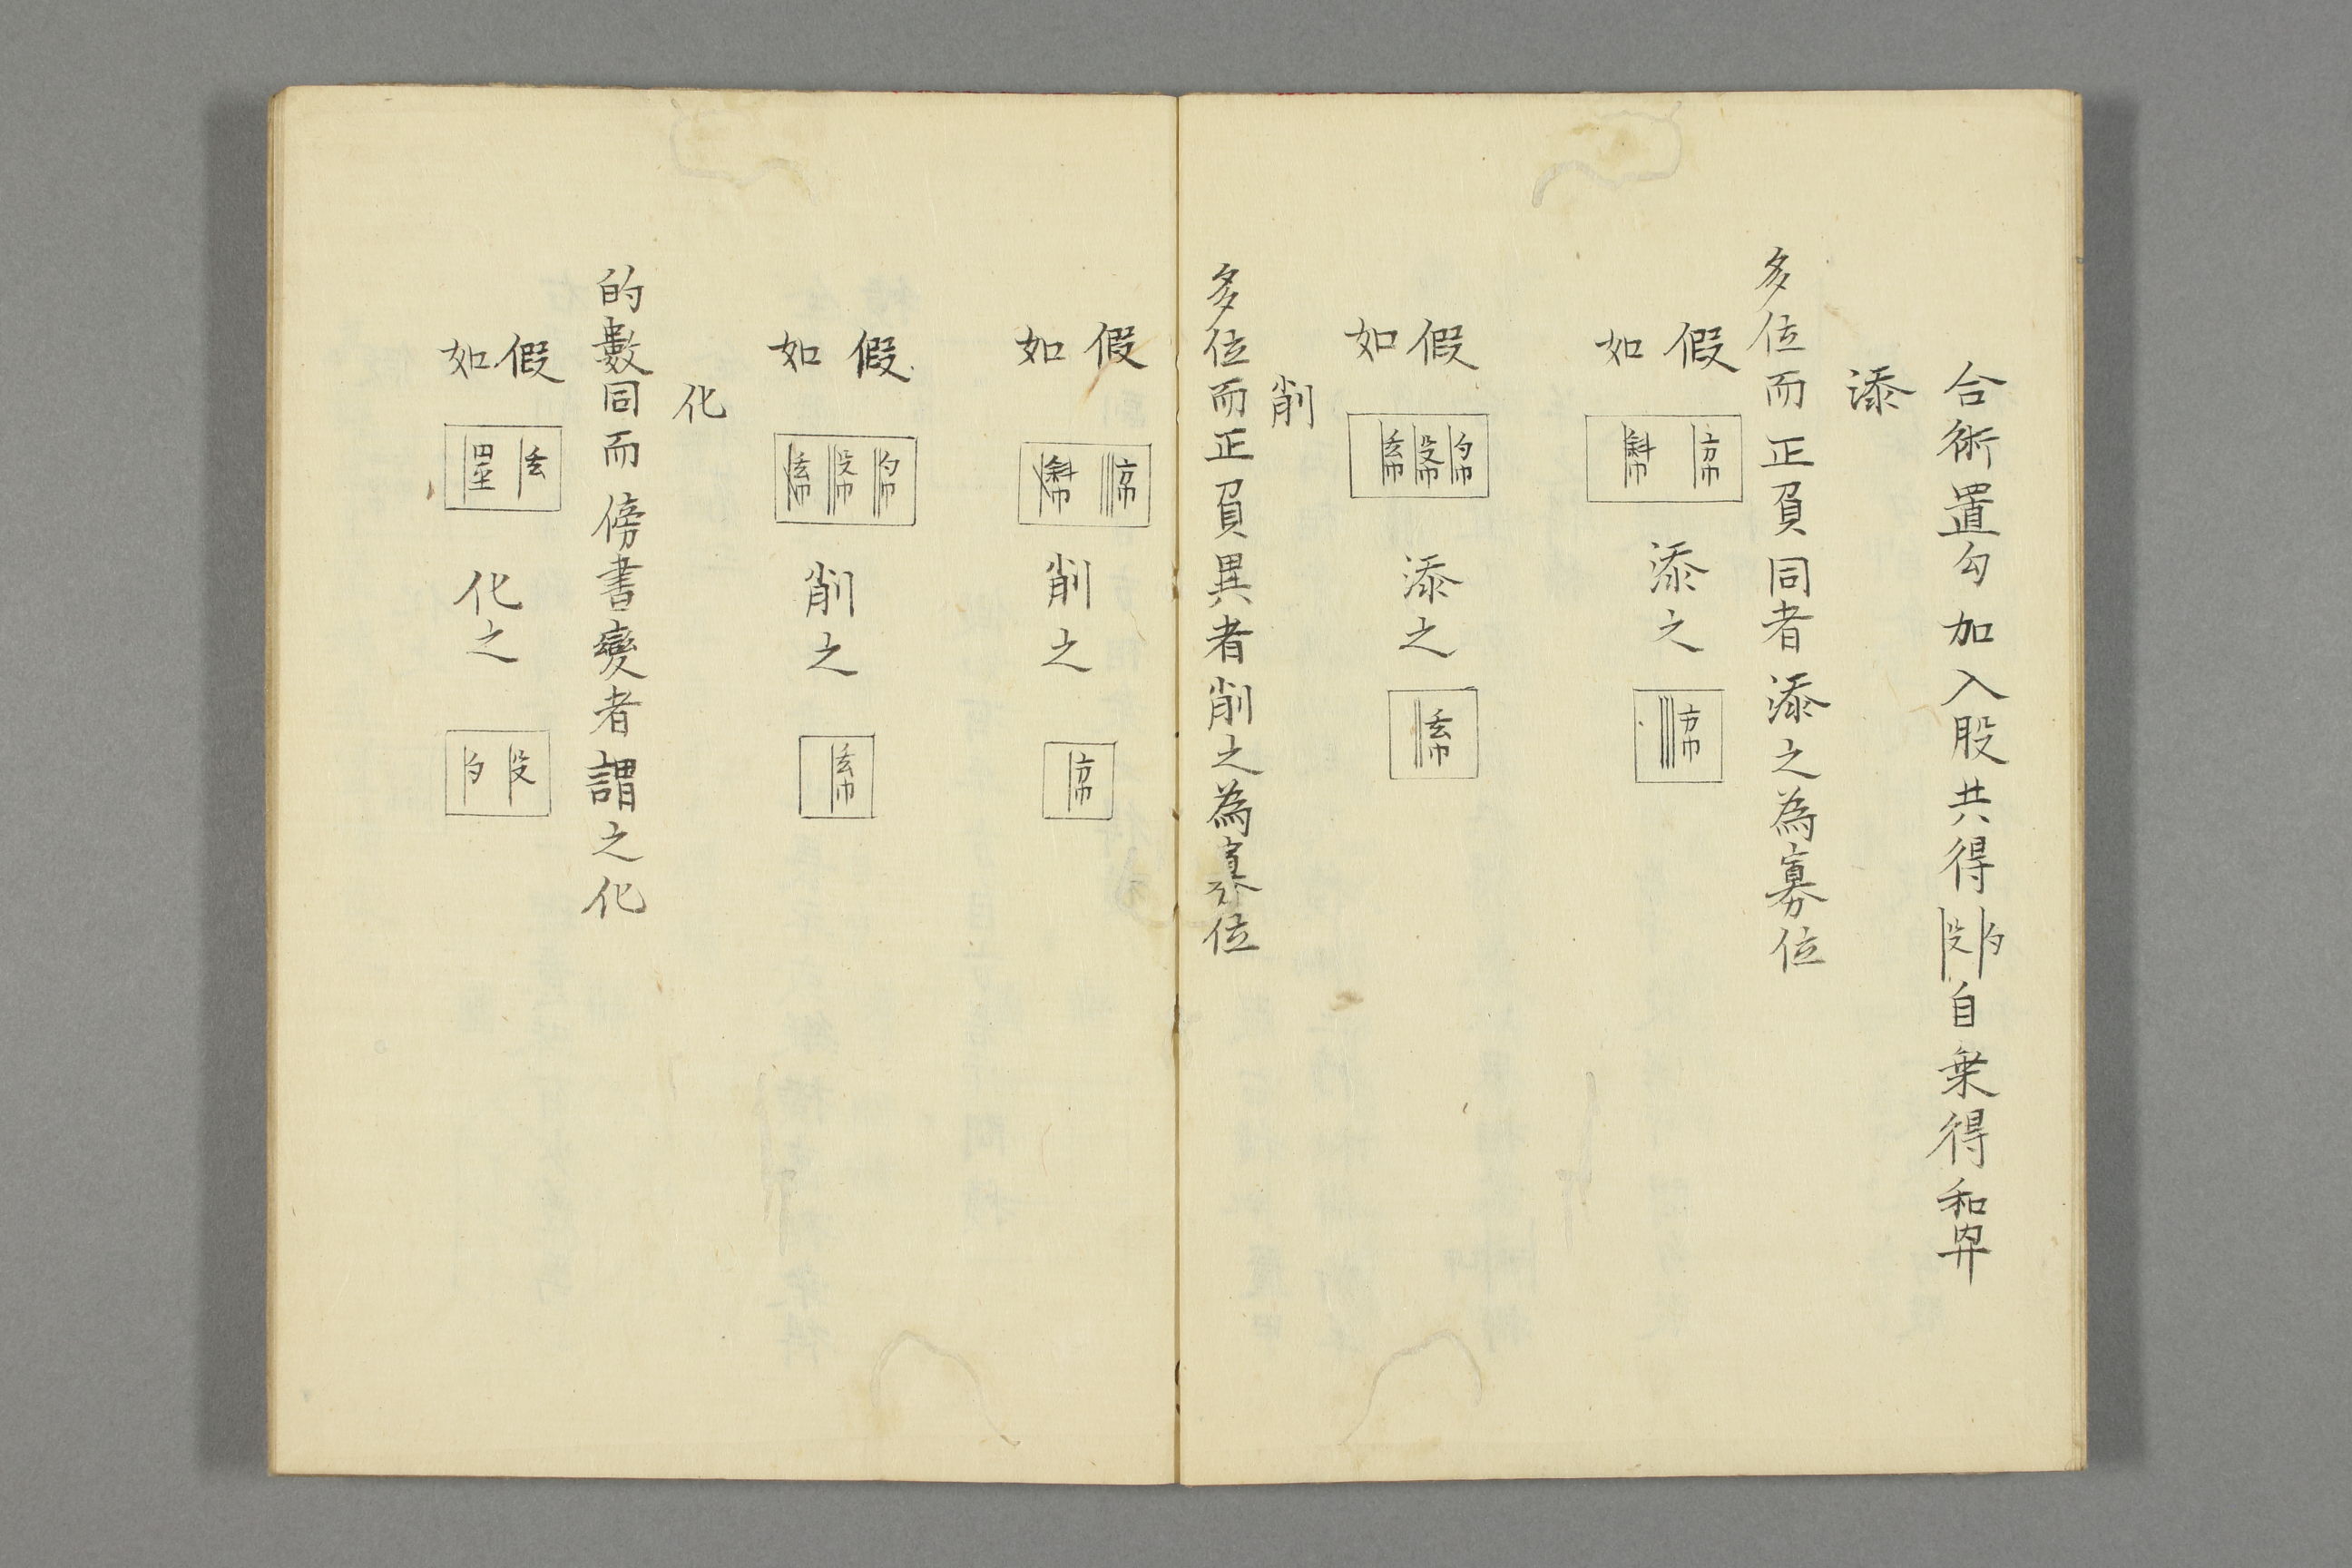 合術置勾加入股共得勹殳自乗得和冪
添
多位而正負同者添之為寡位
假如 添之
假如 添之
削
多位而正負異者削之為寡位
假如 削之
假如 削之
化
的數同而傍書變者謂之化
假如 玄 化之 殳勹